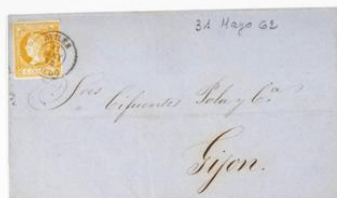 31 Mayo 62
Sres Cifuentes Pola y Cª
Gijon.